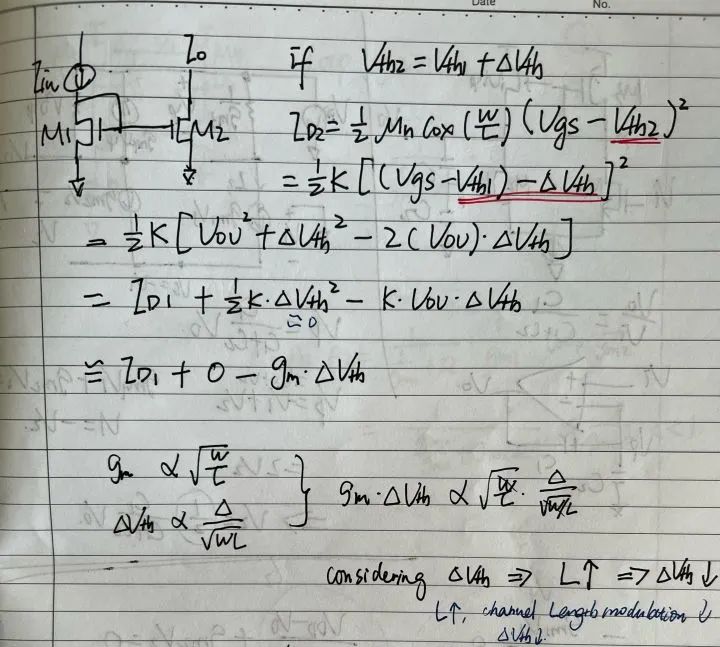 Date No.
Iin Io
M1 M2
if Vth2 = Vth1 + ΔVth
ID2 = ½ Mn Cox (W/L) (Vgs - Vth2)²
= ½ K [(Vgs - Vth1) - ΔVth]²
= ½ K [Vov² + ΔVth² - 2(Vov)·ΔVth]
= ID1 + ½ K·ΔVth² - K·Vov·ΔVth
≈ 0
≅ ID1 + 0 - gm·ΔVth
gm ∝ √(W/L)
ΔVth ∝ Δ/√(WL)
} gm·ΔVth ∝ √(W/L) · Δ/√(WL)
considering ΔVth ⇒ L↑ ⇒ ΔVth ↓
L↑, channel length modulation ↓
ΔVth↓.